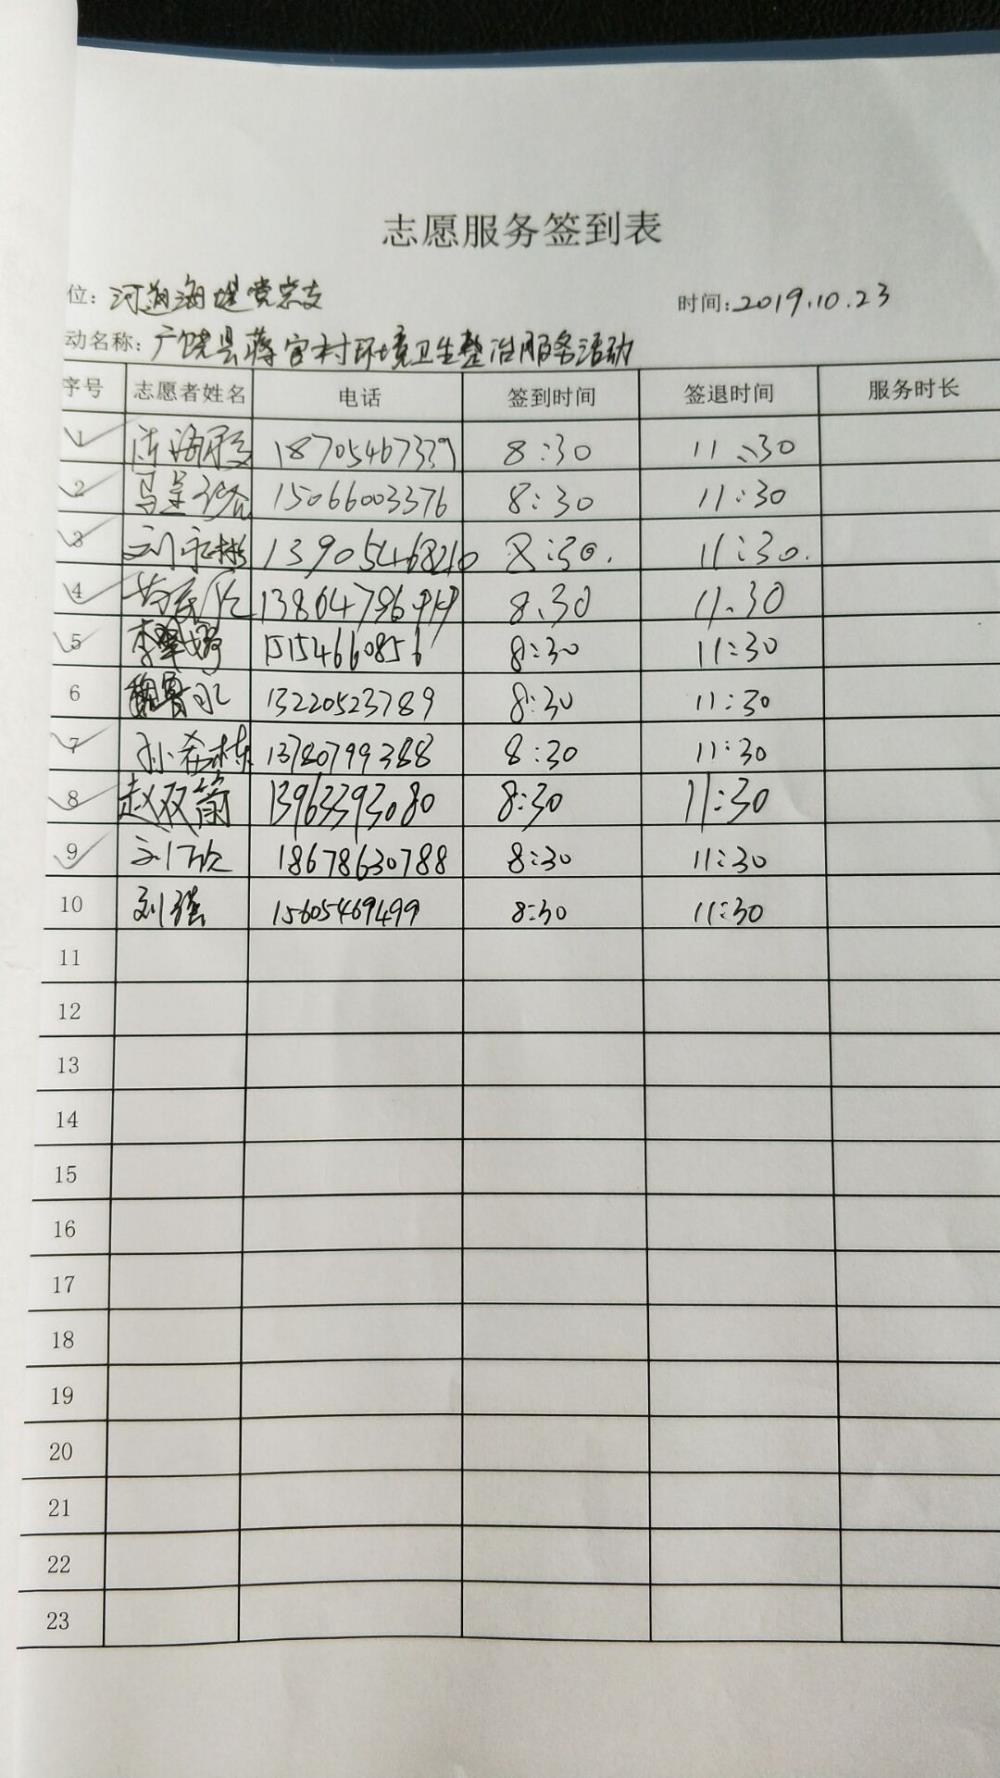 志愿服务签到表
位：河道海堤党总支 时间：2019.10.23
动名称：广饶县蒋官村环境卫生整治服务活动
序号 志愿者姓名 电话 签到时间 签退时间 服务时长
1 18705467339 8:30 11:30
2 15066003376 8:30 11:30
3 刘永彬 8:30. 11:30.
4 8.30 11.30
5 李翠婷 15154660856 8:30 11:30
6 13220523789 8:30 11:30
7 孙希栋 13780799388 8:30 11:30
8 赵双簡 13963393080 8:30 11:30
9 刘欣 18678630788 8:30 11:30
10 刘强 15605469499 8:30 11:30
11
12
13
14
15
16
17
18
19
20
21
22
23